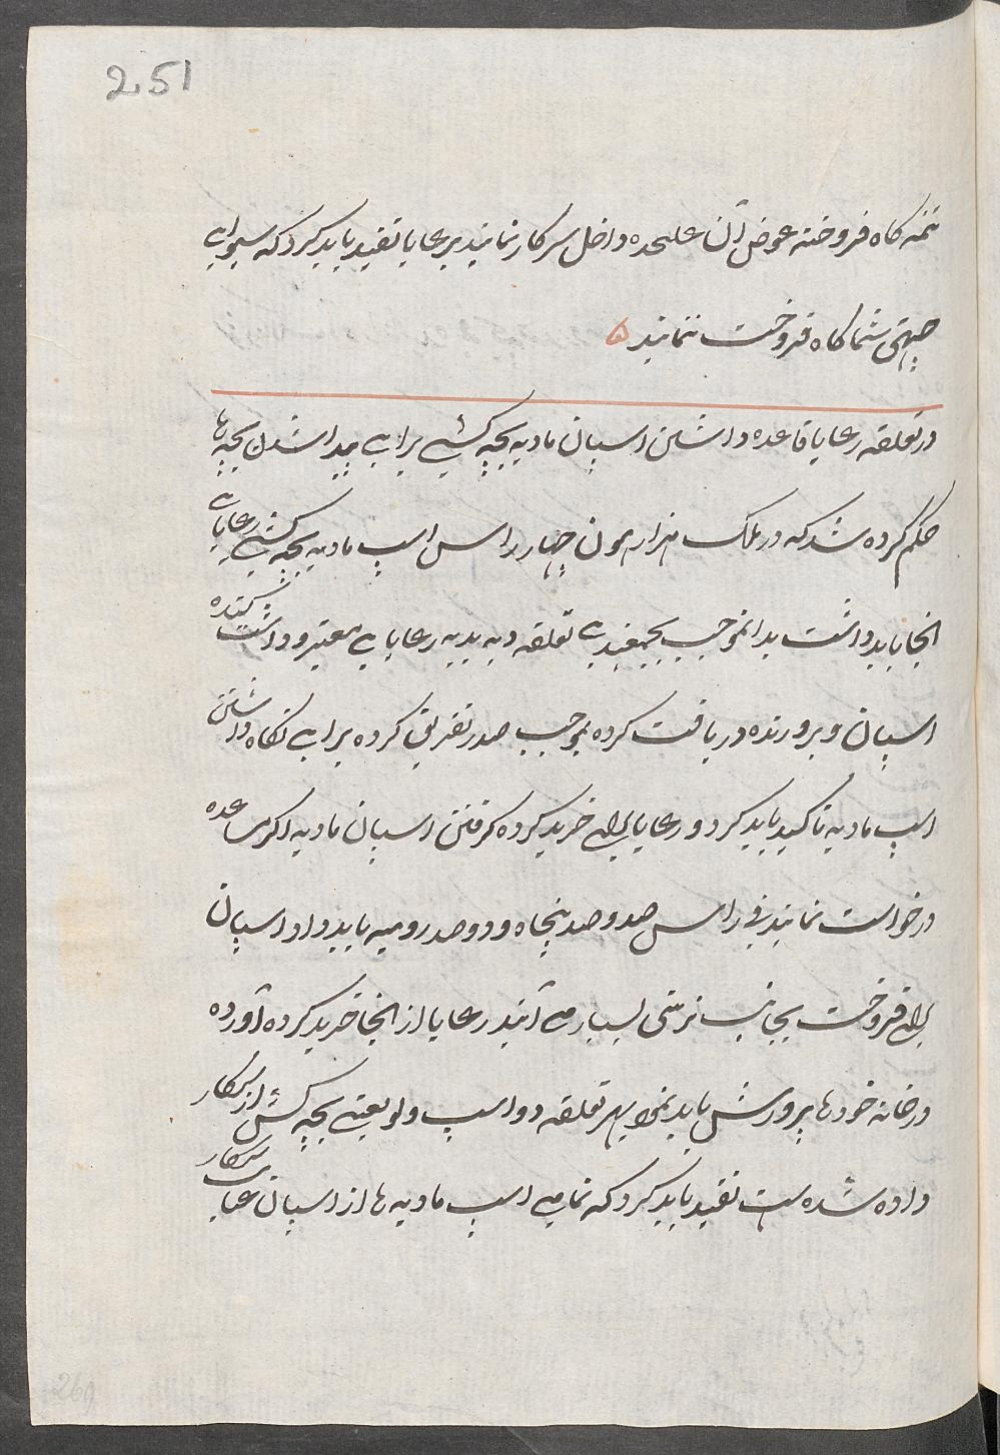 251
تتمه کاه فروخته عوض آن علیحده داخل سرکار نمایند برعایا تقید باید کرد که سیوای
چهتی شما کاه فروخت ننمایند ۵
در تعلقه رعایا قاعده داشتن اسپان مادیه بچه کشی برای پیدا شدن بچه ها
حکم کرده شد که در ملک هزار هون چهار راس اسپ مادیه بچه کشی رعایای
انجا باید داشت بدانموجب بجمعبندی تعلقه دیه بدیه رعایای معتبر و داشت کننده
اسپان و پرورنده دریافت کرده بموجب صدر تفریق کرده برای نگاه داشتن
اسپ مادیه تاکید باید کرد و رعایا برای خرید کرده گرفتن اسپان مادیه اگر مساعده
درخواست نمایند فی راس صد و صد پنجاه و دو صد روپیه باید داد اسپان
برای فروخت بجانب نرسی بسیار می آیند رعایا از انجا خرید کرده آورده
در خانه خودها پرورش باید نمود بهر تعلقه دو اسپ ولایتی بچه کش از سرکار
داده شده است تقید باید کرد که تمامی اسپ مادیه ها از اسپان سرکار
260